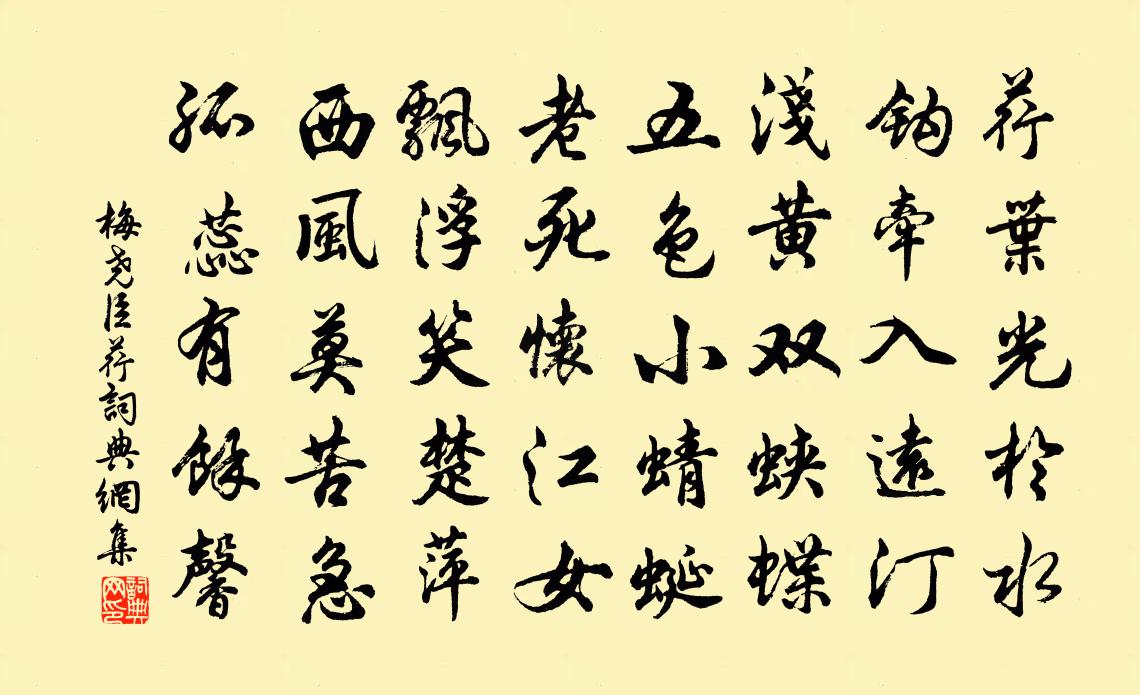 荇葉光於水
鈎牽入遠汀
淺黄双蛺蝶
五色小蜻蜓
老死懷江女
飄浮笑楚萍
西風莫苦急
孤蕊有餘馨
梅尧臣荇詞典網集
詞典网印